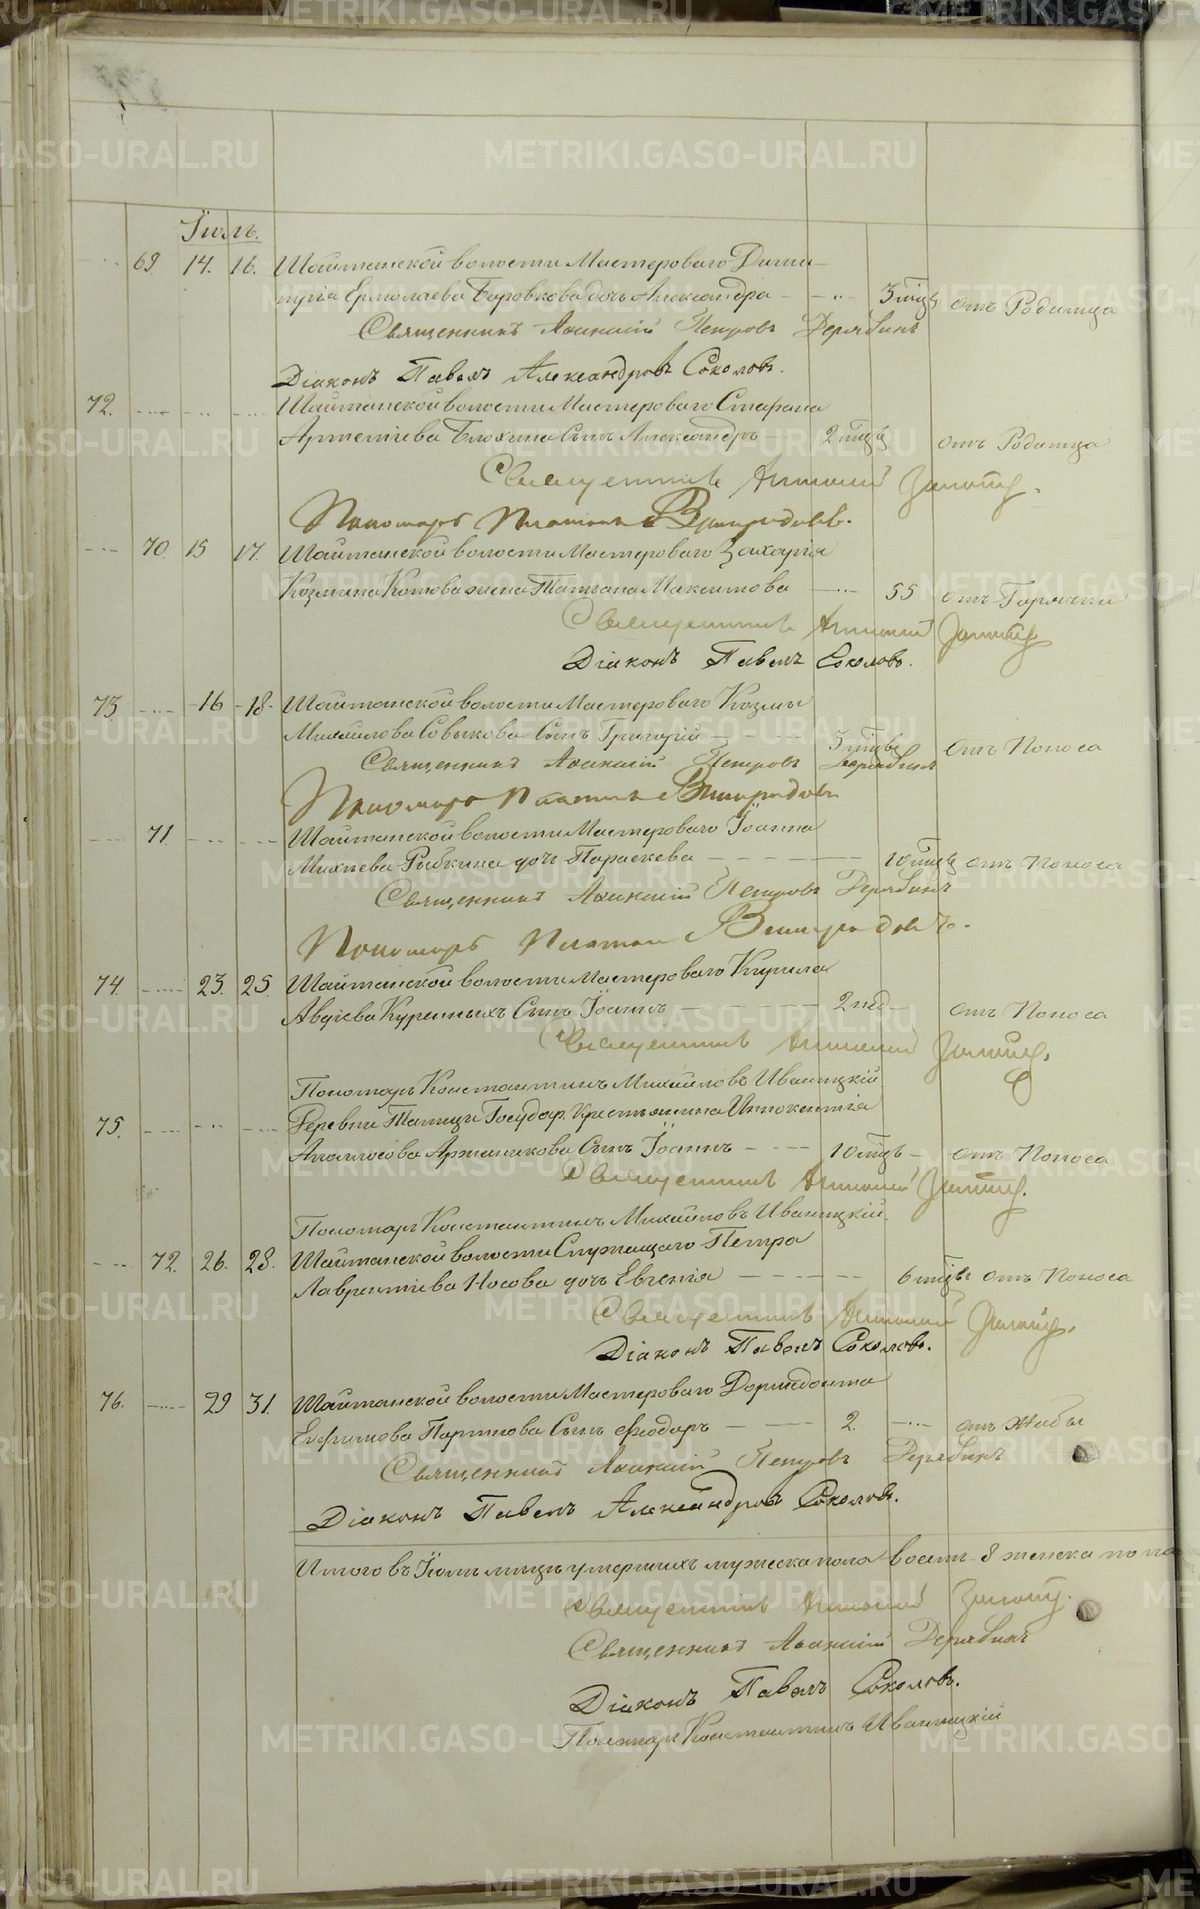 METRIKI.GASO-URAL.RU
Іюль.
69. 14. 16. Шайтанской волости Мастероваго Дими-
трія Ермолаева Боровкова дочь Александра - - „ 3 мцъ отъ Родимца
Священникъ Петровъ Дерябинъ
Діаконъ Павелъ Александровъ Соколовъ.
72. Шайтанской волости Мастероваго Стефана
Артемьева Блохина Сынъ Александръ - 2 мцъ отъ Родимца
Священникъ
Пономарь Платонъ
70. 15 17. Шайтанской волости Мастероваго Захарія
Козмина Котова жена Татьяна Максимова 55 отъ Горячки
Священникъ
Діаконъ Павелъ Соколовъ.
73. 16 18. Шайтанской волости Мастероваго Козмы
Михайлова Совыкова Сынъ Григорій 3 мцъ Отъ Поноса
Священникъ Петровъ Дерябинъ
Пономарь Платонъ
71. Шайтанской волости Мастероваго Іоанна
Михѣева Рыбкина дочь Параскева 10 мцъ отъ Поноса
Священникъ Петровъ Дерябинъ
Пономарь Платонъ
74. 23. 25. Шайтанской волости Мастероваго Кирила
Авдіева Куренныхъ Сынъ Іоаннъ 2 нед отъ Поноса
Священникъ
Пономарь Константинъ Михайловъ Иваницкій
75. Деревни Талицы Государ. Крестьянина Иннокентія
Аполлосова Аржаникова Сынъ Іоаннъ 10 мцъ отъ Поноса
Священникъ
Пономарь Константинъ Михайловъ Иваницкій.
72. 26. 28. Шайтанской волости Служащаго Петра
Лаврентьева Носова дочь Евгенія 6 мцъ отъ Поноса
Священникъ
Діаконъ Павелъ Соколовъ.
76. 29 31. Шайтанской волости Мастероваго Дормедонта
Ефимова Паршова Сынъ Ѳеодоръ 2. отъ Жабы
Священникъ Петровъ Дерябинъ
Діаконъ Павелъ Александровъ Соколовъ.
Итого въ Іюлѣ мцѣ умершихъ мужеска пола восемь 8 женска пола
Священникъ
Священникъ Дерябинъ
Діаконъ Павелъ Соколовъ.
Пономарь Константинъ Иваницкій